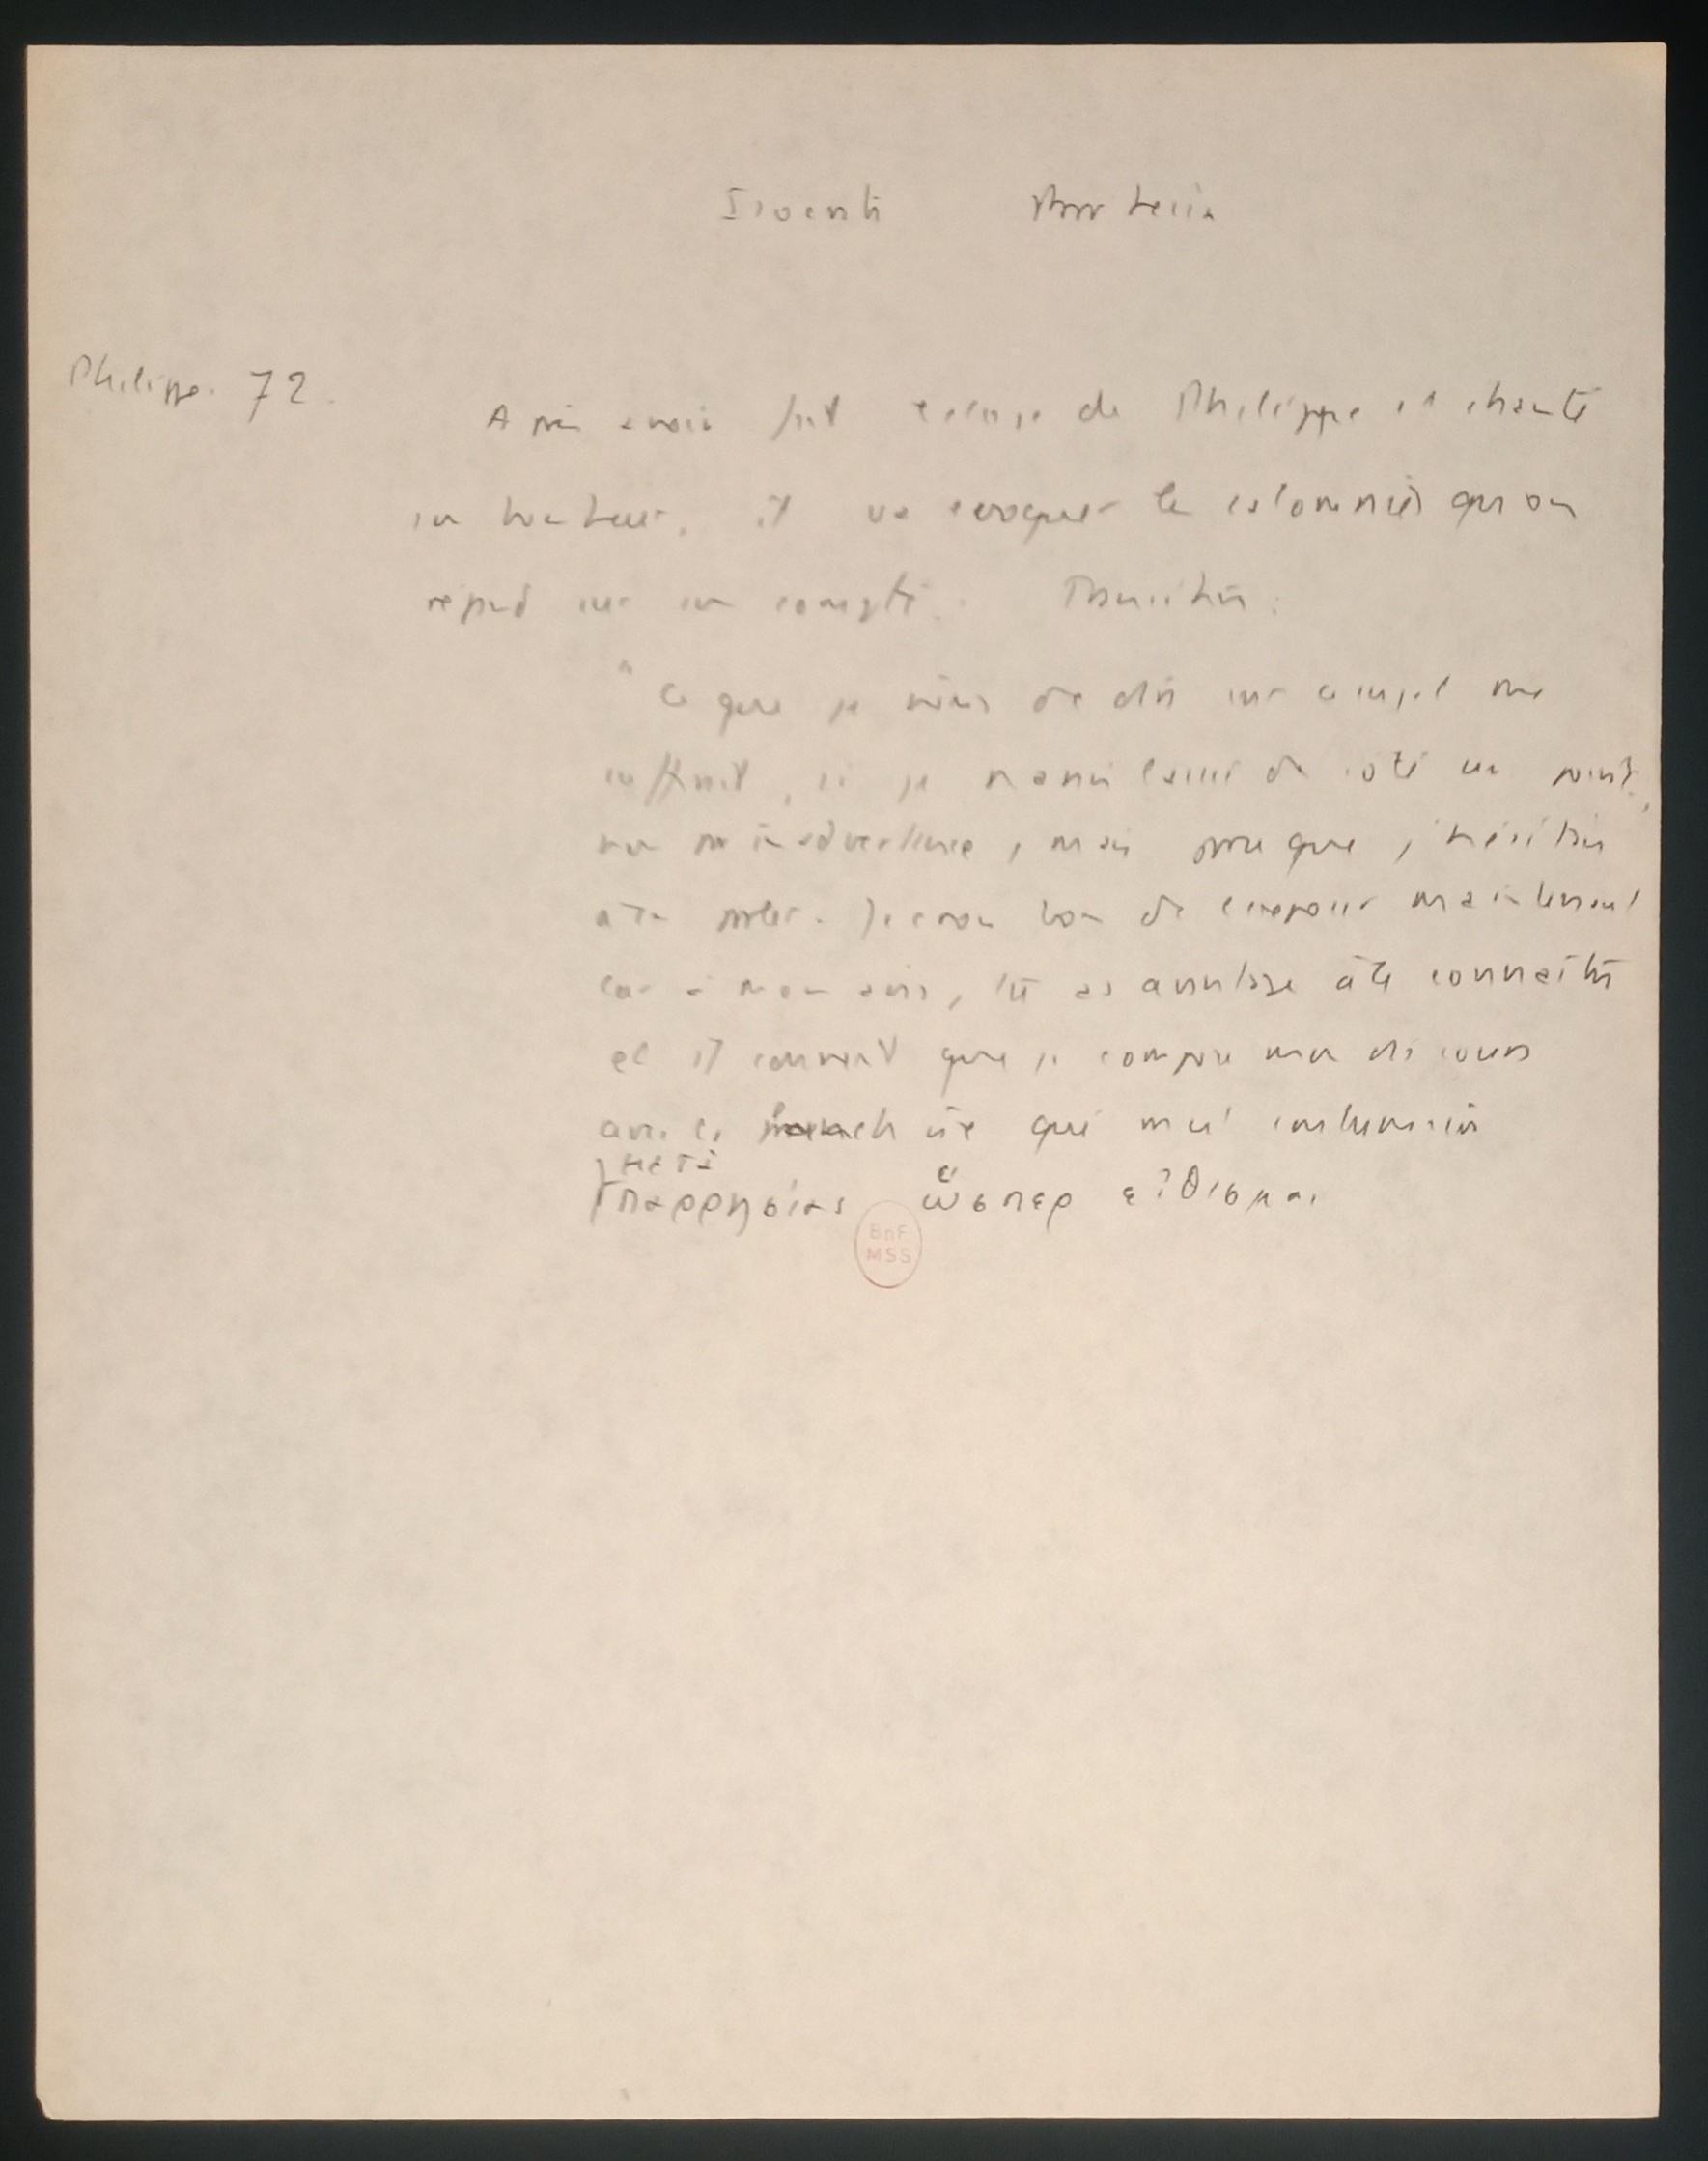 Isocrate Parrhesia
Philippe. 72.
Après avoir fait l'éloge de Philippe et chanté
son bonheur, il va évoquer les calomnies qu'on
répand sur son compte. Transition :
"Ce que je viens de dire sur ce sujet me
suffirait, si je n'avais laissé de côté un point,
non par inadvertance, mais parce que j'hésitais
à en parler. Je crois bon de l'exposer maintenant
car à mon avis, tu as avantage à le connaître
et il convient que je compose mon discours
avec la franchise qui m'est coutumière
μετὰ
παρρησίας ὥσπερ εἴθισμαι
BnF
MSS